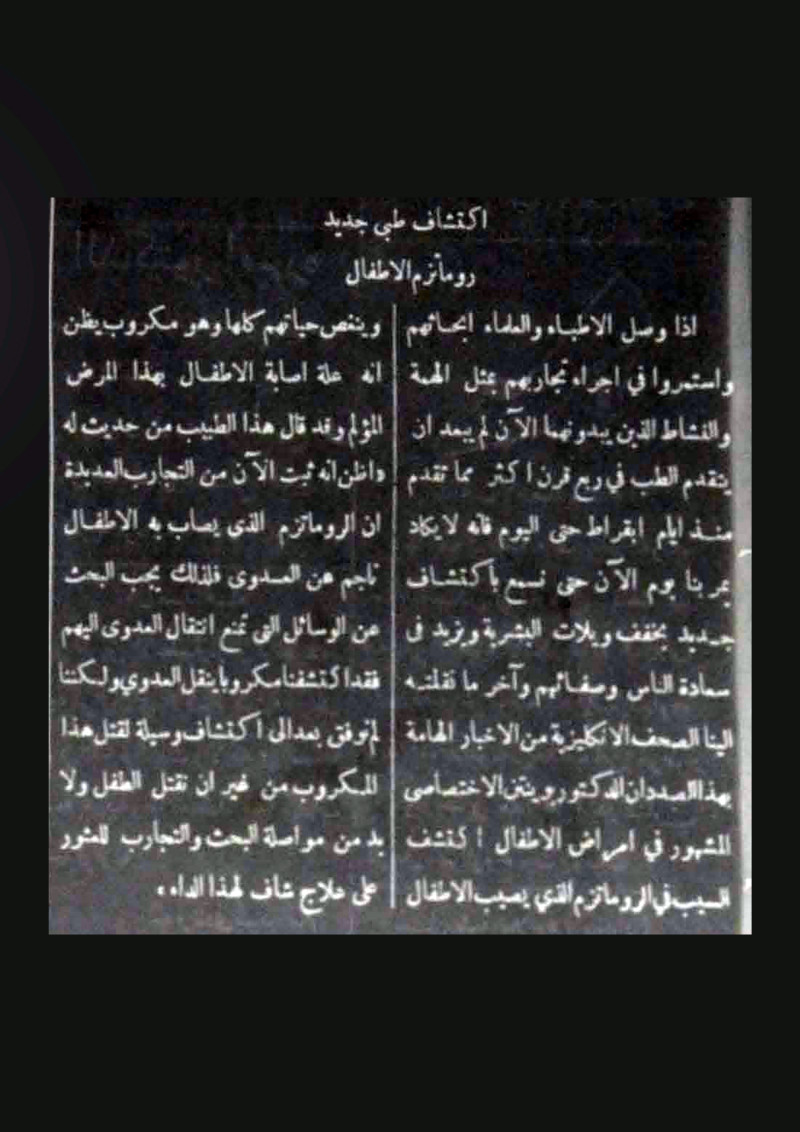 اكتشاف طبي جديد
روماتزم الاطفال
اذا وصل الاطباء والعلماء ابحاثهم
واستمروا في اجراء تجاربهم بمثل الهمة
والنشاط الذين يبدونهما الآن لم يبعد ان
يتقدم الطب في ربع قرن اكثر مما تقدم
منذ ايام ابقراط حتى اليوم فانه لا يكاد
يمر بنا يوم الآن حتى نسمع باكتشاف
جديد يخفف ويلات البشرية ويزيد في
سعادة الناس وصفائهم وآخر ما نقلته
الينا الصحف الانكليزية من الاخبار الهامة
بهذا الصدد ان الدكتور بوينتن الاختصاصي
المشهور في امراض الاطفال اكتشف
السبب في الروماتزم الذي يصيب الاطفال
وينغص حياتهم كلها وهو مكروب يظن
انه علة اصابة الاطفال بهذا المرض
المؤلم وقد قال هذا الطبيب من حديث له
«اظن انه ثبت الآن من التجارب العديدة
ان الروماتزم الذى يصاب به الاطفال
ناجم عن العدوى فلذلك يجب البحث
عن الوسائل التى تمنع انتقال العدوى اليهم
فقد اكتشفنا مكروبا ينقل العدوي ولكننا
لم نوفق بعد الى اكتشاف وسيلة لقتل هذا
المكروب من غير ان نقتل الطفل ولا
بد من مواصلة البحث والتجارب للعثور
على علاج شاف لهذا الداء»